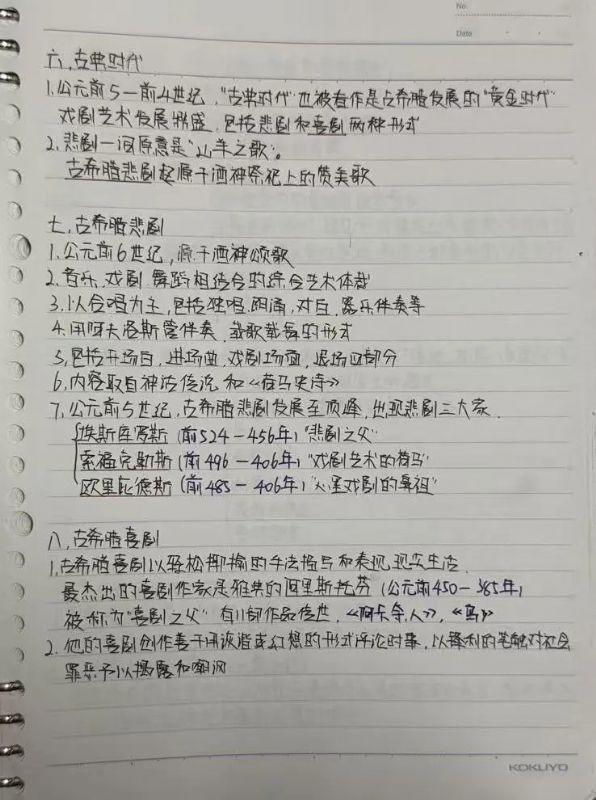 No.
Date
六.古典时代
1.公元前5—前4世纪,"古典时代"也被看作是古希腊发展的"黄金时代"
戏剧艺术发展鼎盛,包括悲剧和喜剧两种形式
2.悲剧一词原意是"山羊之歌"。
古希腊悲剧起源于酒神祭祀上的赞美歌
七.古希腊悲剧
1.公元前6世纪,源于酒神颂歌
2.音乐.戏剧.舞蹈相结合的综合艺术体裁
3.以合唱为主,包括独唱.朗诵,对白,器乐伴奏等
4.用阿夫洛斯管伴奏,载歌载舞的形式
5.包括开场白,进场曲,戏剧场面,退场四部分
6.内容取自神话传说和《荷马史诗》
7.公元前5世纪,古希腊悲剧发展至顶峰,出现悲剧三大家.
埃斯库罗斯(前524—456年)"悲剧之父"
索福克勒斯(前496—406年)"戏剧艺术的荷马"
欧里庇德斯(前485—406年)"心里戏剧的鼻祖"
八.古希腊喜剧
1.古希腊喜剧以轻松揶揄的手法描写和表现现实生活.
最杰出的喜剧作家是雅典的阿里斯托芬(公元前450—385年)
被称为"喜剧之父"有11部作品传世,《阿卡奈人》,《鸟》
2.他的喜剧创作善于用诙谐或幻想的形式评论时事,以锋利的笔触对社会
罪恶予以揭露和嘲讽
KOKUYO